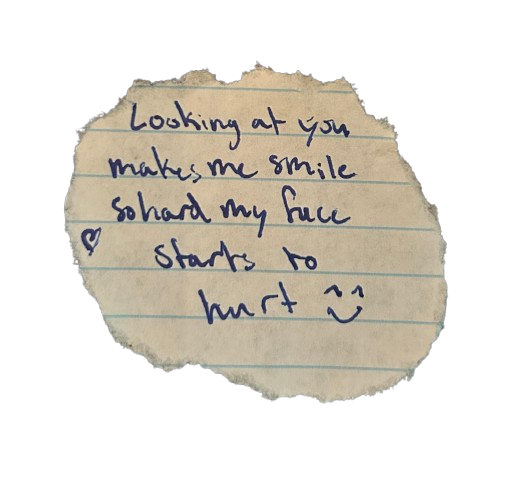 Looking at you
makes me smile
so hard my face
starts to
hurt